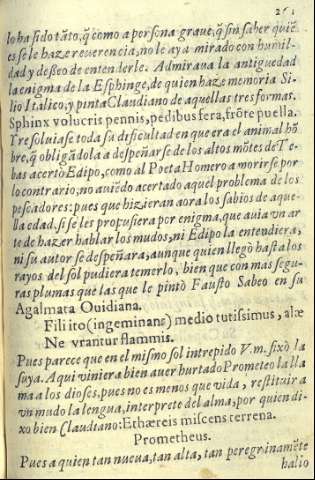 261
lo ha sido tãto, q̃ como a persona graue, q̃ sin saber quiẽ
es se le haze reuerencia, no le ay a mirado con humil-
dad y desseo de entenderle. Admiraua la antiguedad
la enigma de la Esphinge, de quien haze memoria Si-
lio Italico, y pinta Claudiano de aquellas tres formas.
Sphinx volucris pennis, pedibus fera, frõte puella.
Tresoluiase toda su dificultad en que era el animal hõ
bre, q̃ obligãdola a despeñarse de los altos mõtes de Te-
bas acertò Edipo, como al Poeta Homero a morirse por
lo contrario, no auiẽdo acertado aquel problema de los
pescadores: pues que hizieran aora los sabios de aque-
lla edad, si se les propusiera por enigma, que auia vn ar
te de hazer hablar los mudos, ni Edipo la entendiera,
ni su autor se despeñara, aunque quien llegò hasta los
rayos del sol pudiera temerlo, bien que con mas segu-
ras plumas que las que le pintò Fausto Sabeo en su
Agalmata Ouidiana.
Fili ito (ingeminans) medio tutissimus, alæ
Ne vrantur flammis.
Pues parece que en el mismo sol intrepido V.m. fixò la
suya. Aqui viniera bien auer hurtado Prometeo la lla
ma a los dioses, pues no es menos que vida, restituir a
vn mudo la lengua, interprete del alma, por quien di-
xo bien Claudiano: Ethæreis miscens terrena.
Prometheus.
Pues a quien tan nueua, tan alta, tan peregrinamẽte
halio